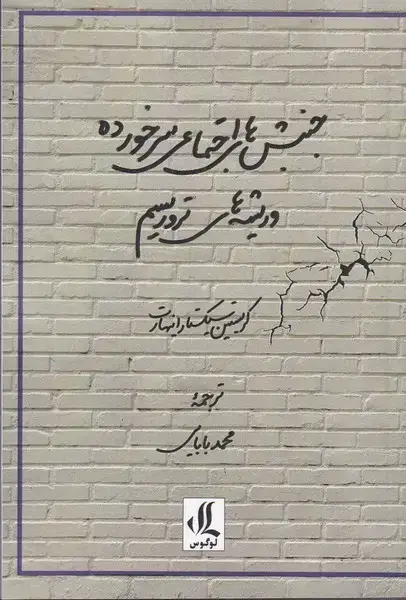 جنبش‌های اجتماعی سرخورده
و ریشه‌های تروریسم
کریستین سیکستا رینهارت
ترجمهٔ
محمد بابایی
لوگوس